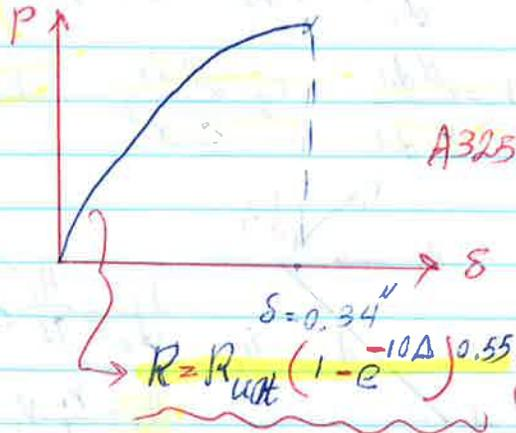 P
A325
δ
δ = 0.34"
R = Rult (1 - e^-10Δ)^0.55